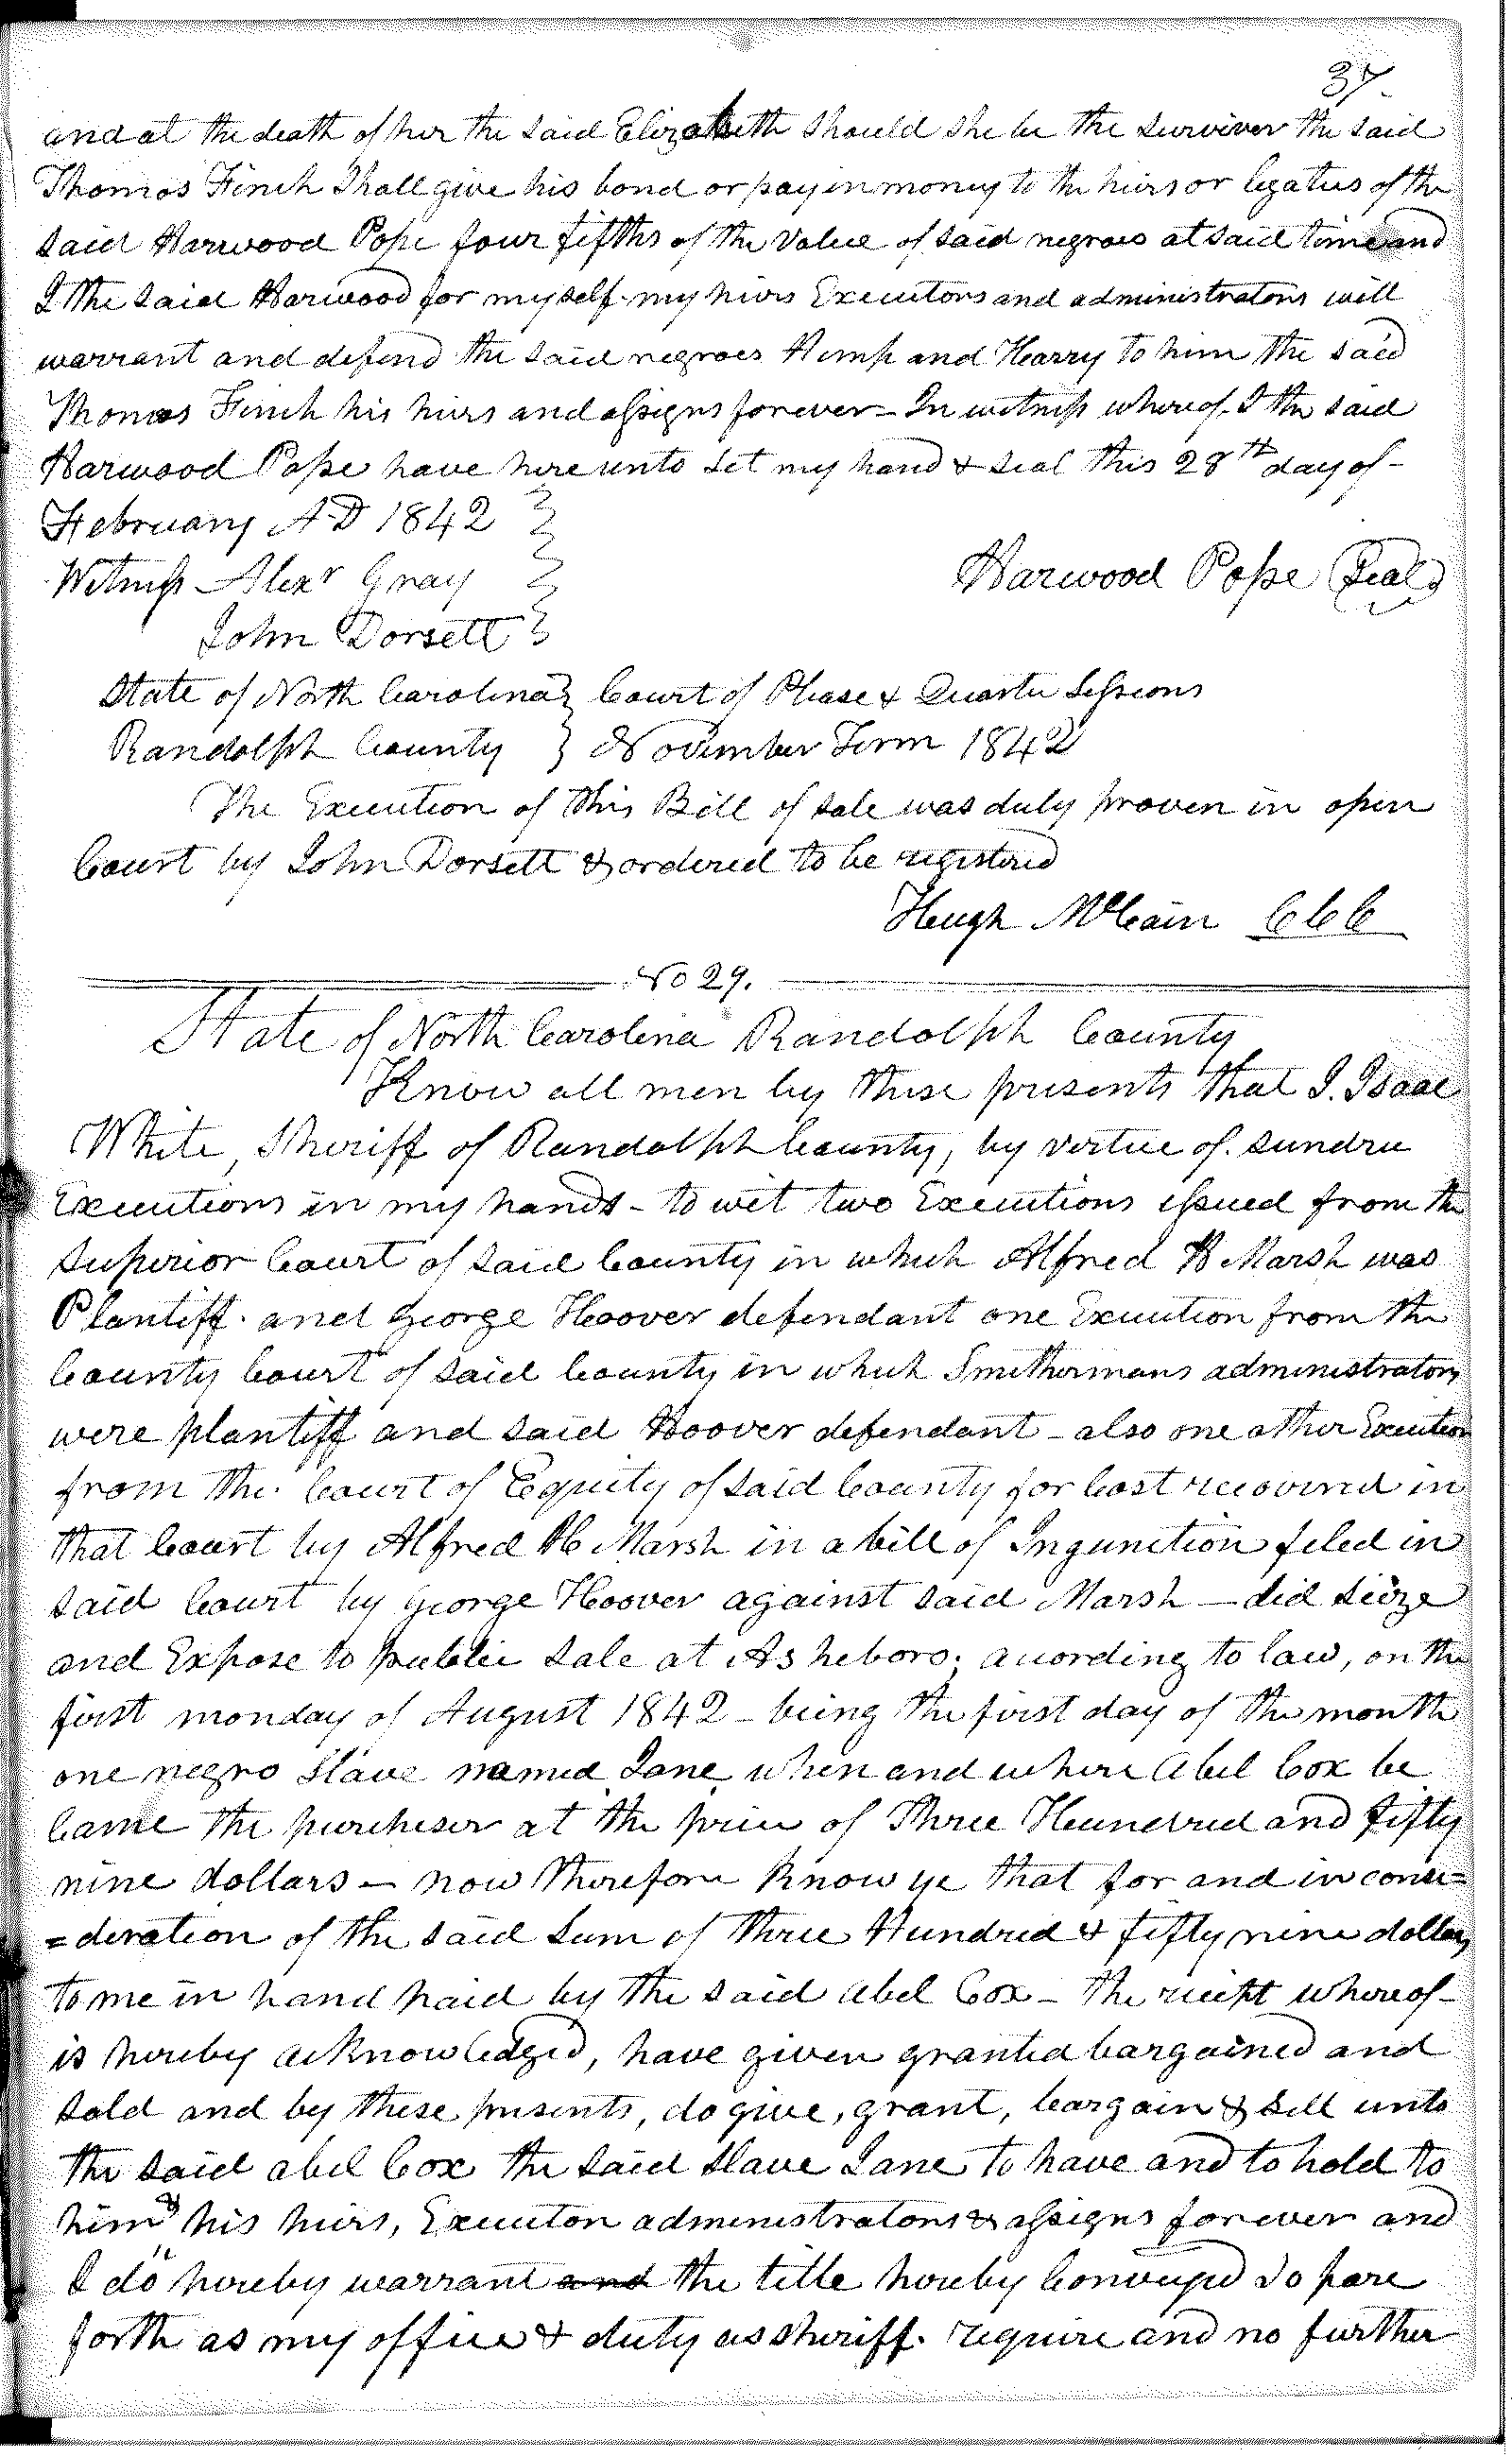 37
and at the death of her the said Elizabeth should she be the surviver the said
Thomas Finch Shall give his bond or pay in money to the heirs or legatees of the
said Harwood Pope four fifths of the value of said negroes at said time and
I the said Harwood for myself my heirs Executors and administrators will
warrant and defend the said negroes Hemp and Harry to him the said
Thomas Finch his heirs and assigns forever - In witness whereof I the said
Harwood Pope have hereunto set my hand & seal this 28th day of -
February A.D 1842
Witness Alexr Gray
Harwood Pope (Seal)
John Dorsett
State of North Carolina } Court of Please & Quarter Sessions
Randolph County } November Term 1842
The Execution of this Bill of sale was duly proven in open
Court by John Dorsett & ordered to be registered
Hugh McCain CCC
No 29.
State of North Carolina Randolph County
Know all men by these presents that I. Isaac
White, Sheriff of Randolph County, by vertue of. sundrie
Executions in my hands - to wit two Executions issued from the
Superior Court of said County in which Alfred H Marsh was
Plantiff. and George Hoover defendant one Execution from the
County Court of said County in which Smithermans administrators
were plantiff and said Hoover defendant - also one other Execution
from the Court of Equity of said County for Cost recovered in
that Court by Alfred H Marsh in a bill of Ingunction filed in
said Court by George Hoover against said Marsh - did seize
and Expose to public sale at Asheboro. according to law, on the
first monday of August 1842 - being the first day of the month
one negro Slave named Jane when and where Abel Cox be
came the purcheser at the price of Three Hundred and fifty
nine dollars - now therefore Know ye that for and in consi=
=deration of the said sum of three Hundred & fifty nine dollars
to me in hand paid by the said Abel Cox - the reciept whereof -
is hereby acknowledged, have given granted bargained and
sold and by these presents, do give, grant, bargain & sell unto
the said abel Cox the said slave Jane to have and to hold to
him & his heirs, Executors administrators & assigns forever and
I do hereby warrant and the title hereby Conveyed so fare
forth as my office & duty as sheriff. require and no further